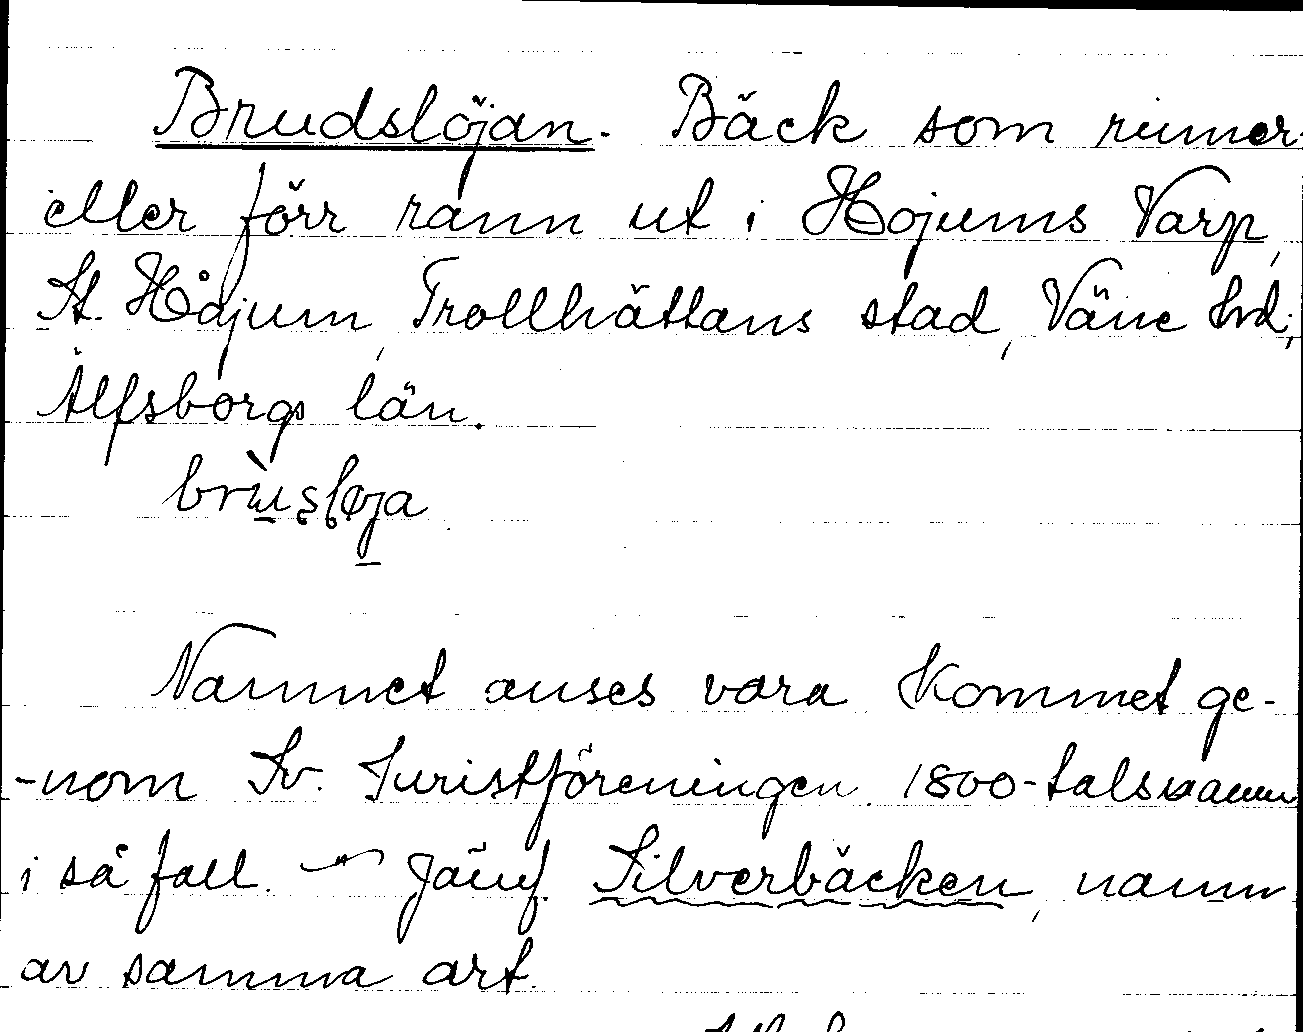 Brudslöjan. Bäck som rinner
eller förr rann ut i Hojums Varp,
St. Håjum, Trollhättans stad, Väne hd,
Älfsborgs län.

Namnet anses vara kommet ge-
-nom Sv. Turistföreningen. 1800-talsnamn
i så fall. — Jämf. Silverbäcken, namn
av samma art.